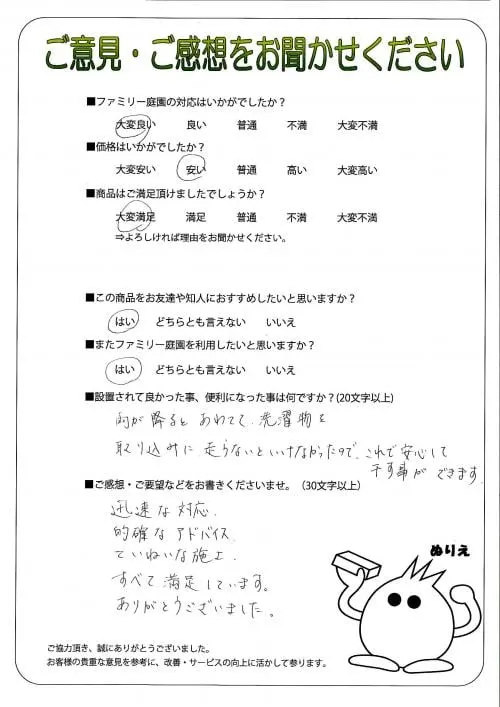 ご意見・ご感想をお聞かせください
■ファミリー庭園の対応はいかがでしたか？
大変良い 良い 普通 不満 大変不満
■価格はいかがでしたか？
大変安い 安い 普通 高い 大変高い
■商品はご満足頂けましたでしょうか？
大変満足 満足 普通 不満 大変不満
⇒よろしければ理由をお聞かせください。
■この商品をお友達や知人におすすめしたいと思いますか？
はい どちらとも言えない いいえ
■またファミリー庭園を利用したいと思いますか？
はい どちらとも言えない いいえ
■設置されて良かった事、便利になった事は何ですか？(20文字以上)
雨が降るとあわてて、洗濯物を
取り込みに走らないといけなかったので、これで安心して
干す事ができます。
■ご感想・ご要望などをお書きくださいませ。（30文字以上）
迅速な対応、
的確なアドバイス
ていねいな施工、
すべて満足しています。
ありがとうございました。
ぬりえ
ご協力頂き、誠にありがとうございました。
お客様の貴重な意見を参考に、改善・サービスの向上に活かして参ります。